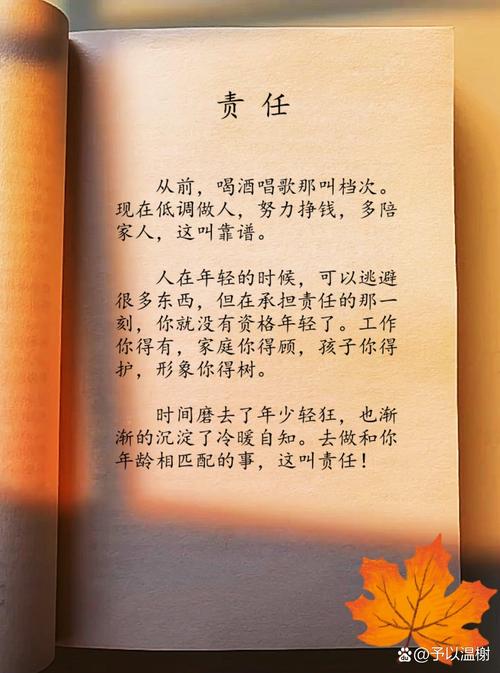 责 任
从前，喝酒唱歌那叫档次。
现在低调做人，努力挣钱，多陪
家人，这叫靠谱。
人在年轻的时候，可以逃避
很多东西，但在承担责任的那一
刻，你就没有资格年轻了。工作
你得有，家庭你得顾，孩子你得
护，形象你得树。
时间磨去了年少轻狂，也渐
渐的沉淀了冷暖自知。去做和你
年龄相匹配的事，这叫责任！
@予以温榭